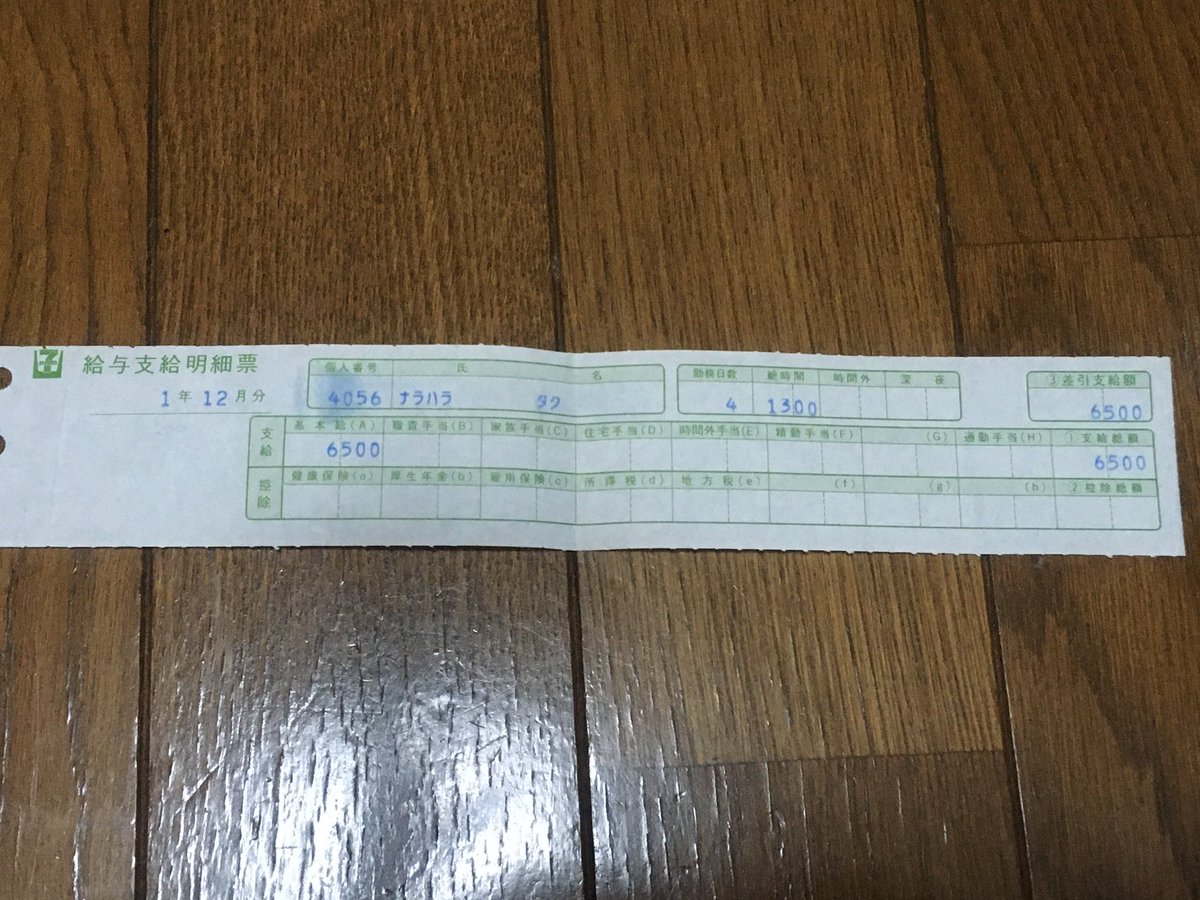 給与支給明細票
1年12月分
個人番号 氏 名
4056 ナラハラ タク
勤務日数 総時間 時間外 深夜
4 1300
③差引支給額
6500
支給
基本給(A) 職責手当(B) 家族手当(C) 住宅手当(D) 時間外手当(E) 精勤手当(F) (G) 通勤手当(H) ①支給総額
6500 6500
控除
健康保険(a) 厚生年金(b) 雇用保険(c) 所得税(d) 地方税(e) (f) (g) (h) ②控除総額